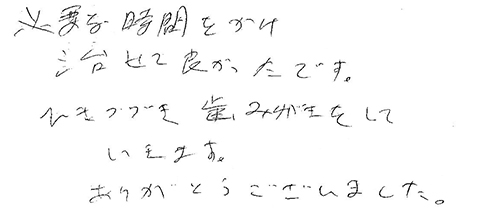 必要な時間をかけ
治せて良かったです。
ひきつづき歯みがきをして
いきます。
ありがとうございました。